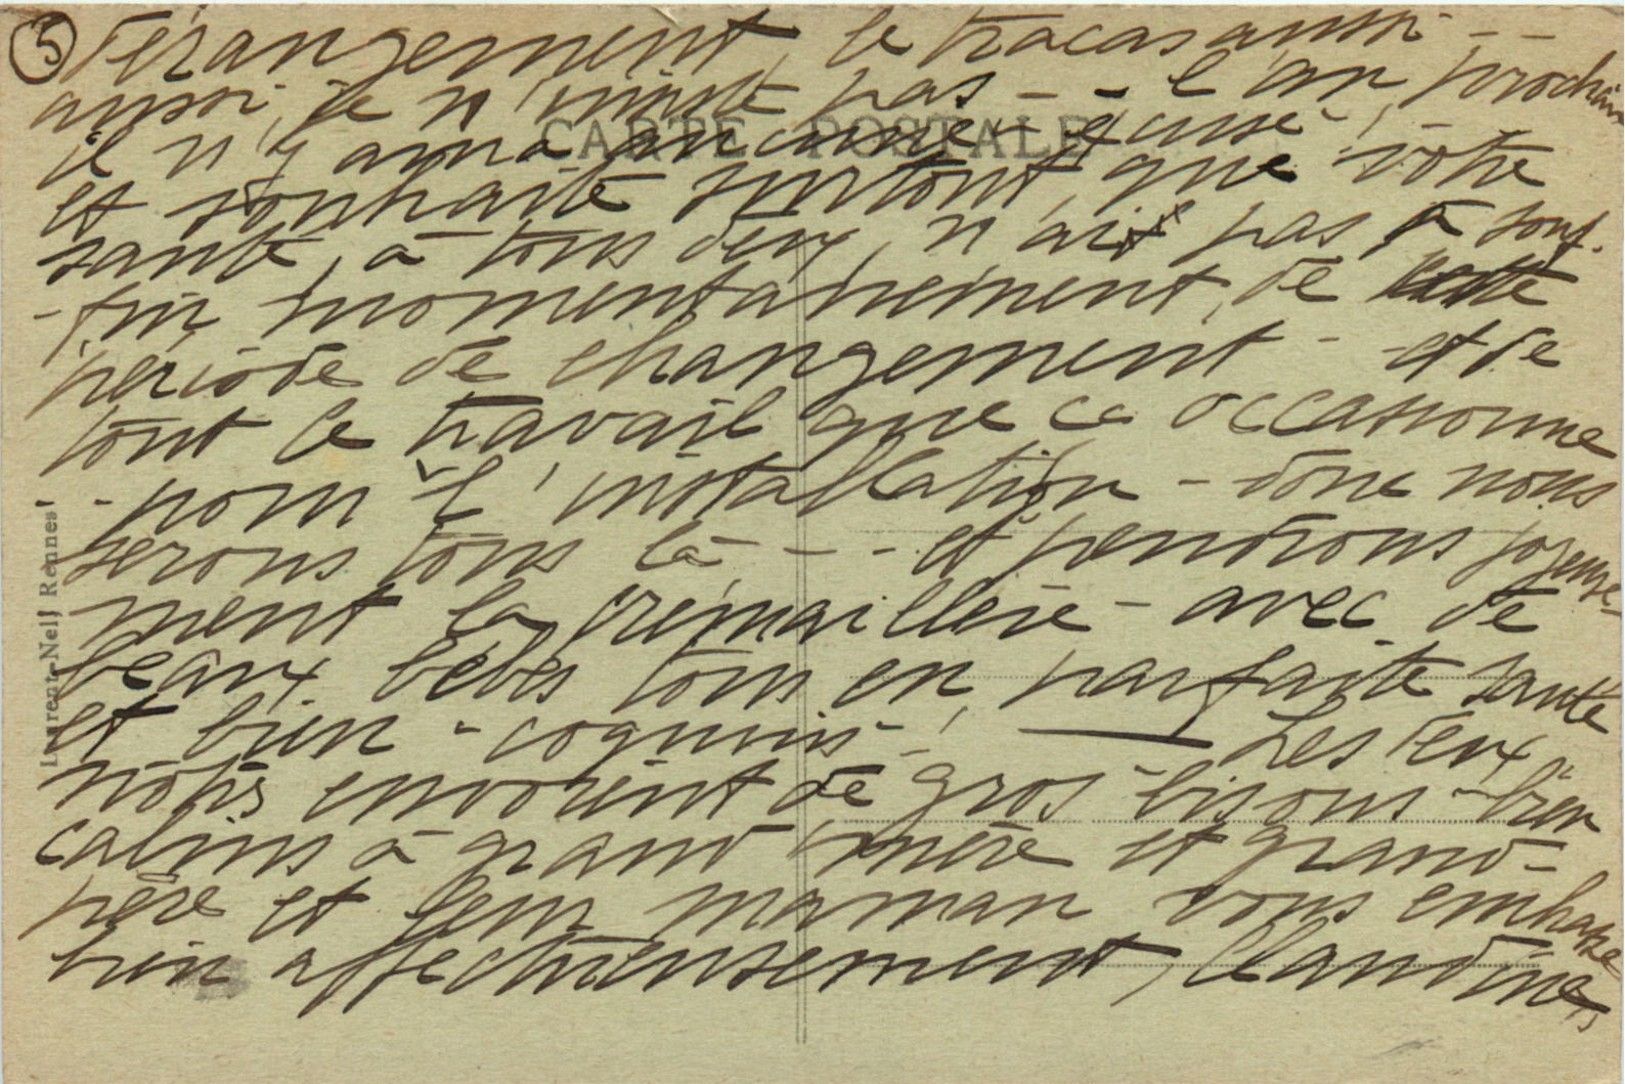 ③ dérangement, le tracas aussi - -
aussi, je n'insiste pas - - l'an prochain
CARTE POSTALE
il n'y aura aucune excuse - !
et souhaite surtout que votre
santé, à tous deux, n'ait pas à souf-
-frir momentanément, de cette
période de changement - - et de
tout le travail que ça occasionne
- pour l'installation - donc nous
serons tous là - - - et pendrons joyeuse-
ment la crémaillère - avec de
beaux bébés tous en parfaite santé
et bien - coquins - ! Les deux
nôtres envoient de gros bisous - bien
calins à grand mère et grand-
père et leur maman vous embrasse
bien affectueusement, Claudine,
Laurent-Nel, Rennes